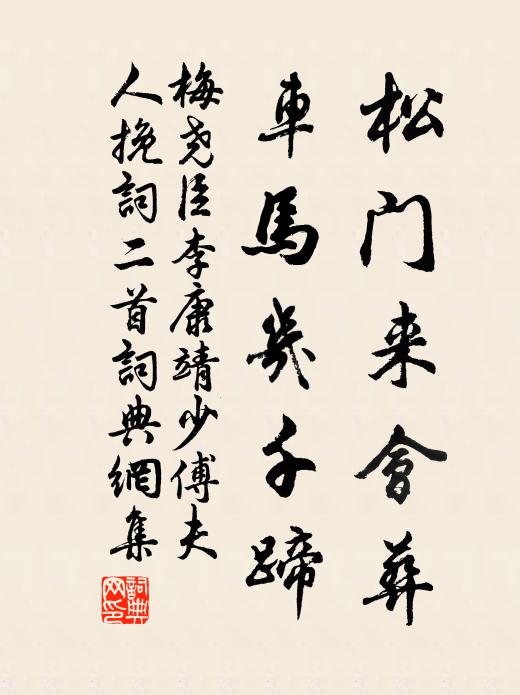 松门来會葬
車馬幾千蹄
梅尧臣李康靖少傅夫
人挽詞二首詞典網集
詞典网印